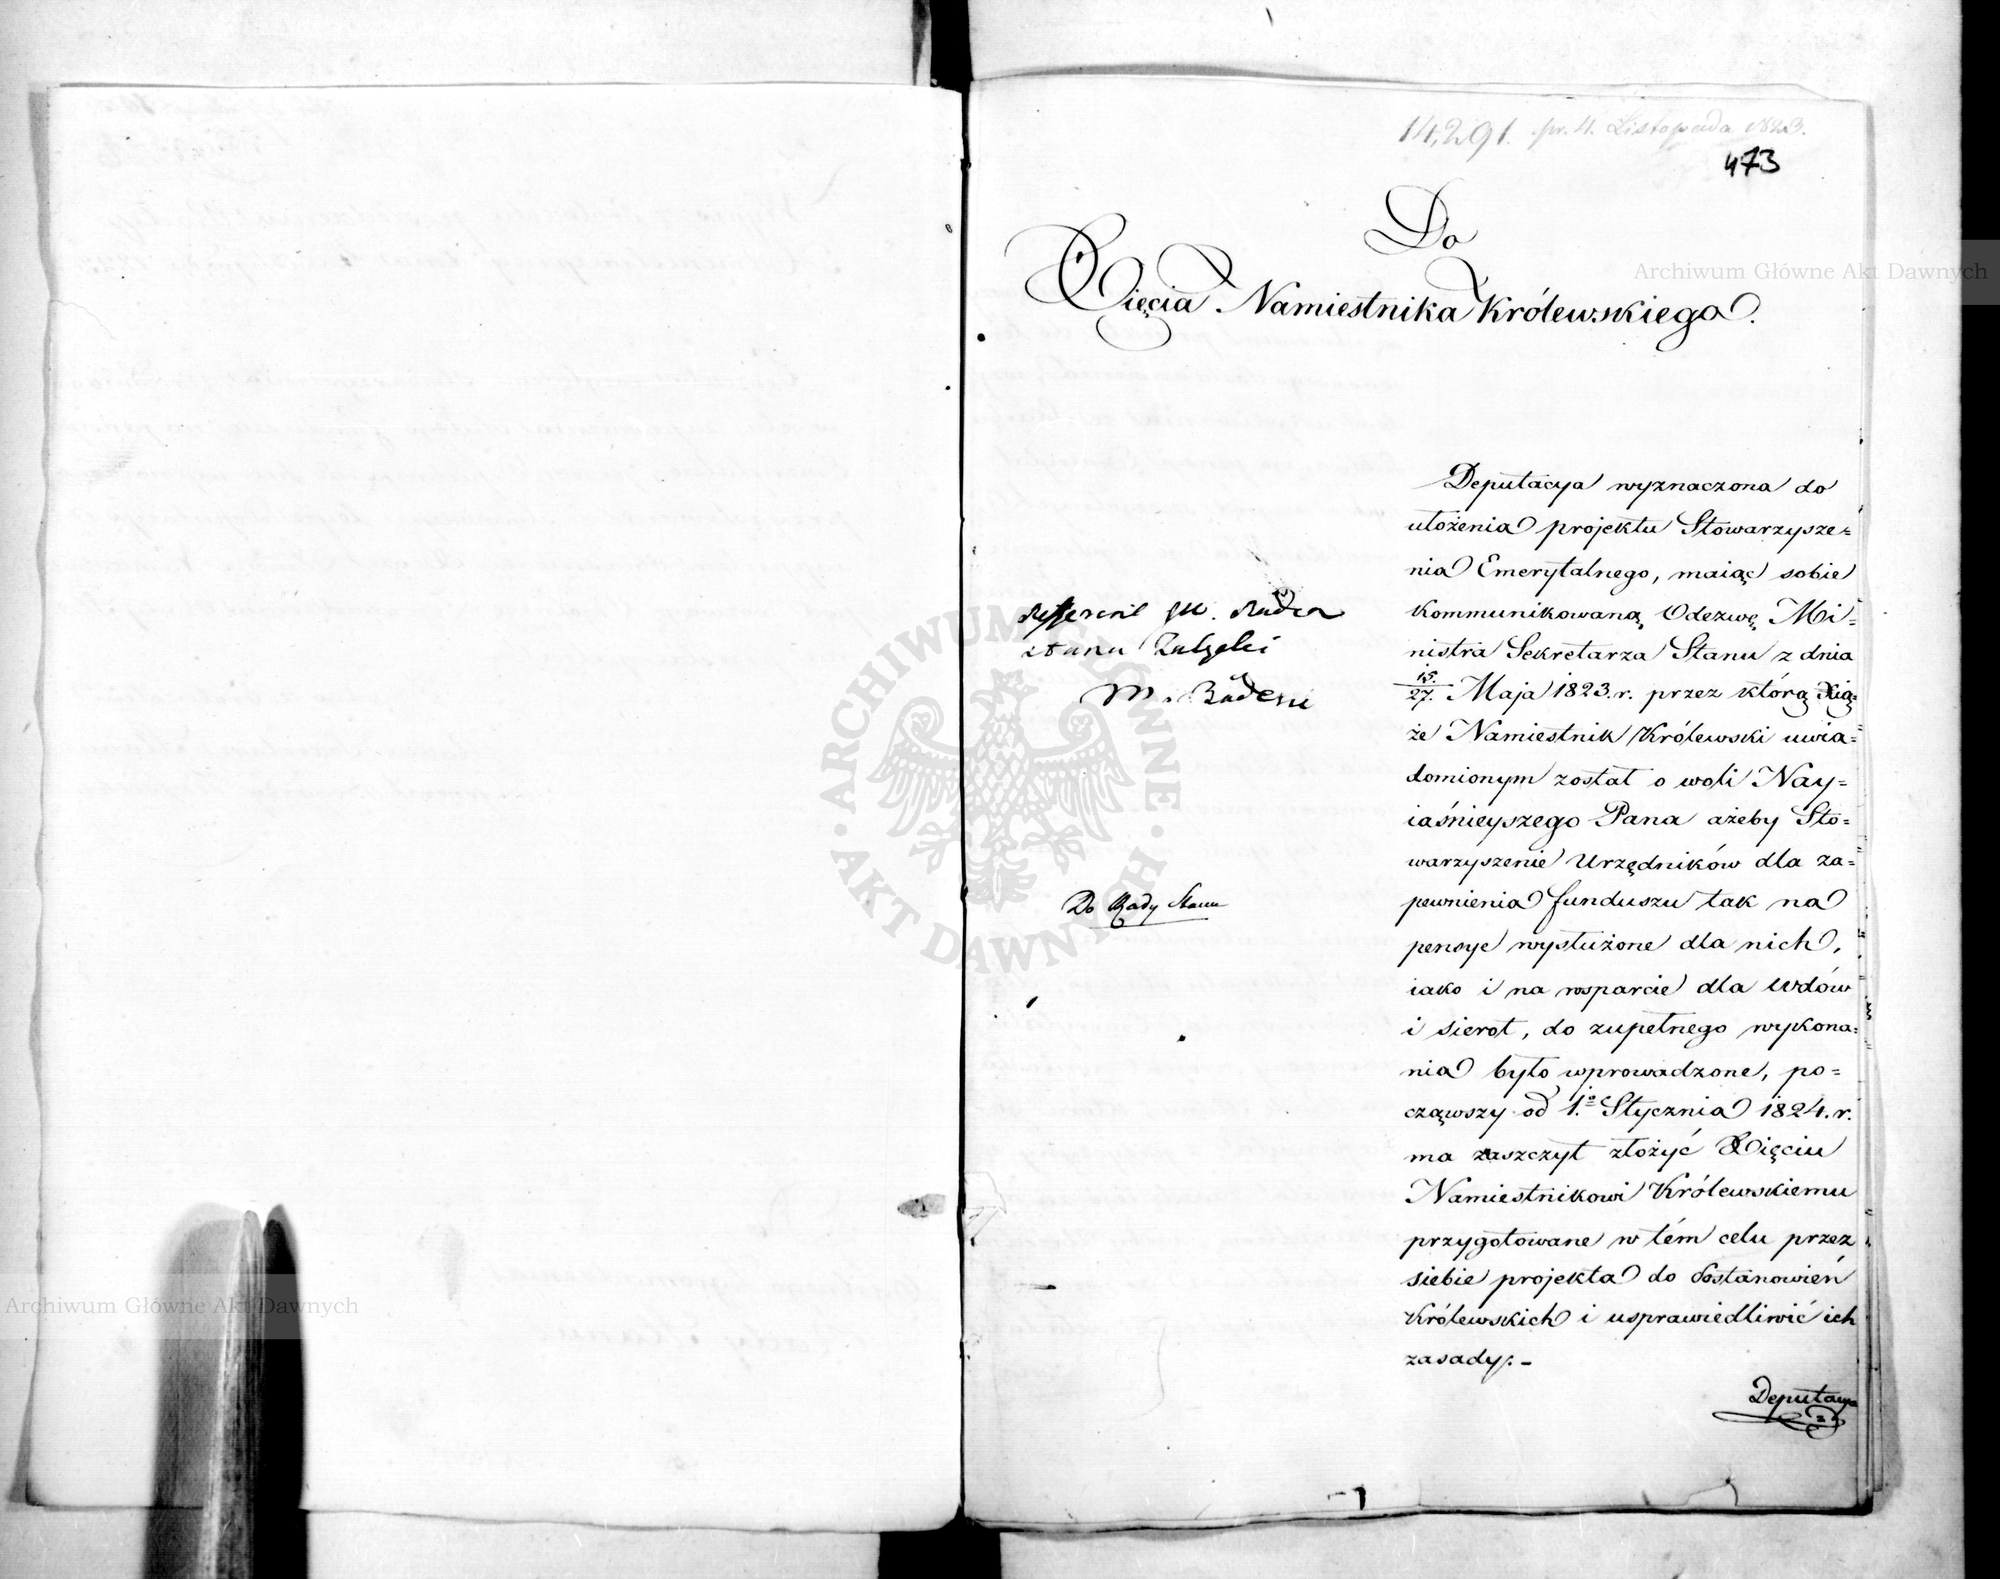 14,291. pr. 4. Listopada 1823.
473
Do
Xięcia Namiestnika Królewskiego.
Deputacya wyznaczona do
ułożenia projektu Stowarzysze=
nia Emerytalnego, maiąc sobie
kommunikowaną Odezwę Mi=
nistra Sekretarza Stanu z dnia
15./27. Maja 1823. r. przez którą Xią=
że Namiestnik Królewski uwia=
domionym został o woli Nay=
iaśnieyszego Pana ażeby Sto=
warzyszenie Urzędników dla za=
pewnienia funduszu tak na
pensye wysłużone dla nich,
iako i na wsparcie dla Wdów
i sierot, do zupełnego wykona=
nia było wprowadzone, po=
cząwszy od 1.o Stycznia 1824. r.
ma zaszczyt złożyć Xięciu
Namiestnikowi Królewskiemu
przygotowane w tém celu przez
siebie projekta do Postanowień
Królewskich i usprawiedliwić ich
zasady. –
Deputacya
Referent JW. Radca
Stanu
M. Badeni
Do Rady Stanu
ARCHIWUM GŁÓWNE
AKT DAWNYCH
Archiwum Główne Akt Dawnych
Archiwum Główne Akt Dawnych